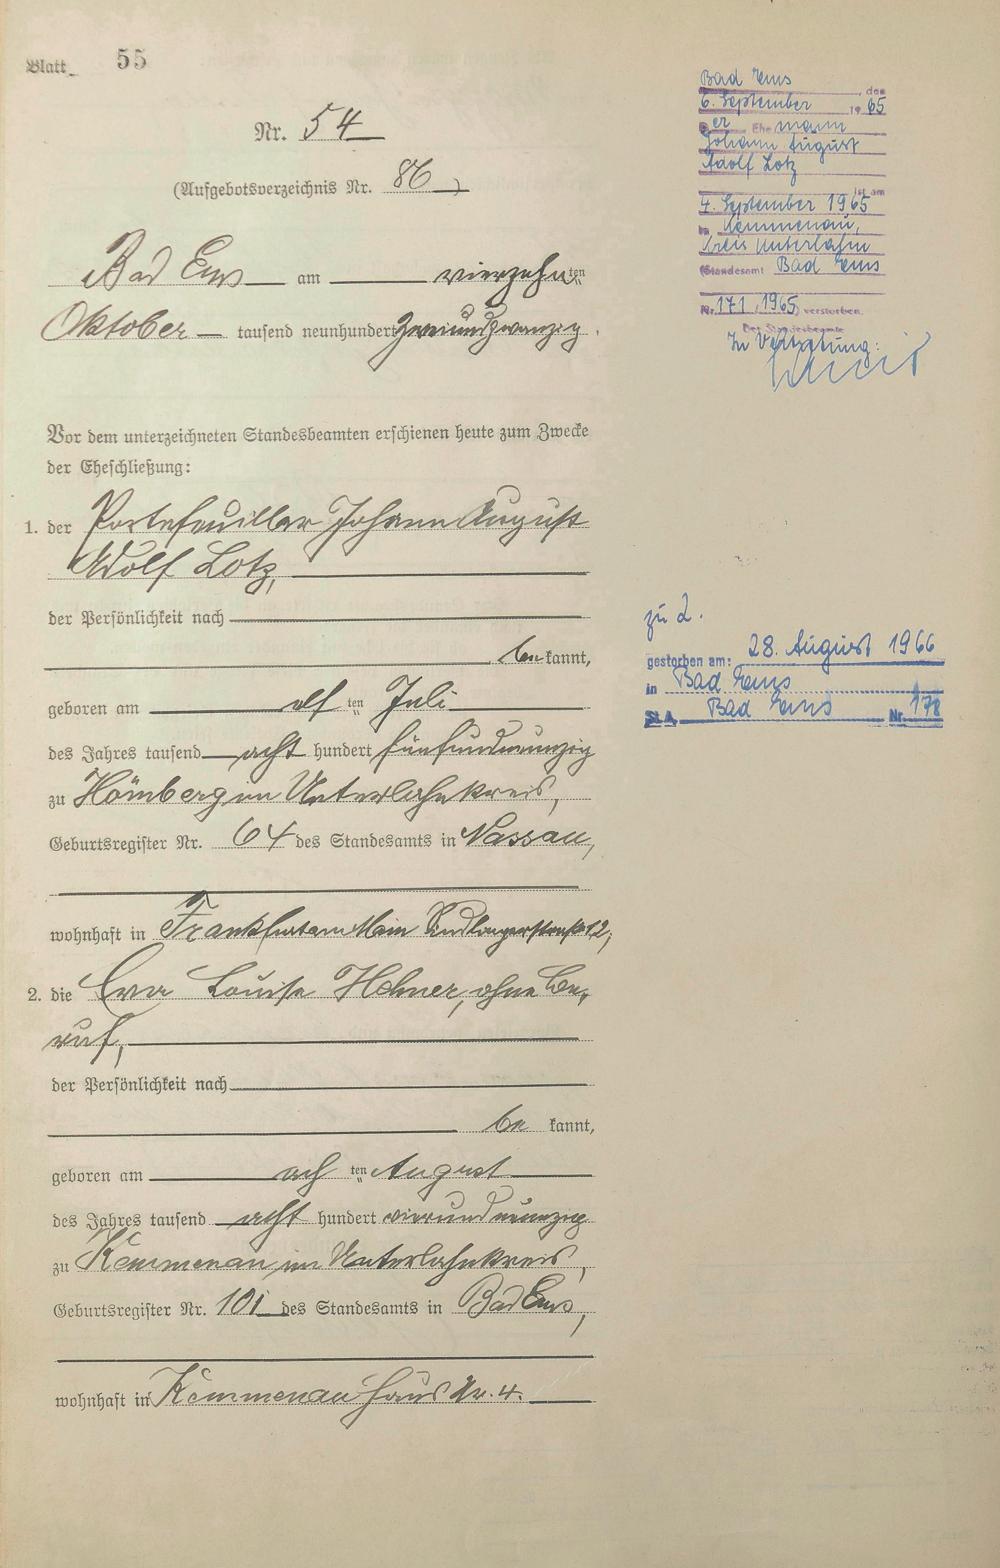 Blatt 55
Nr. 54
(Aufgebotsverzeichnis Nr. 86)
Bad Ems am vierzehnten
Oktober tausend neunhundert zweiundzwanzig.
Vor dem unterzeichneten Standesbeamten erschienen heute zum Zwecke
der Eheschließung:
1. der Portefeuiller Johann August
Adolf Lotz,
der Persönlichkeit nach
bekannt,
geboren am elf ten Juli
des Jahres tausend acht hundert fünfundneunzig
zu Hömberg im Unterlahnkreis,
Geburtsregister Nr. 64 des Standesamts in Nassau,
wohnhaft in Frankfurt am Main 12,
2. die Eva Louise Hehner, ohne Be-
ruf,
der Persönlichkeit nach
be kannt,
geboren am ach ten August
des Jahres tausend acht hundert vierundneunzig
zu Kemmenau im Unterlahnkreis,
Geburtsregister Nr. 101 des Standesamts in Bad Ems,
wohnhaft in Kemmenau Haus Nr. 4.
Bad Ems, den
6. September 1965
Der Ehemann
Johann August
Adolf Lotz
ist am
4. September 1965
in Kemmenau,
Kreis Unterlahn
(Standesamt Bad Ems
Nr. 171/1965) verstorben.
Der Standesbeamte
In Vertretung:
zu 2.
gestorben am: 28. August 1966
in Bad Ems
St.A. Bad Ems Nr. 178